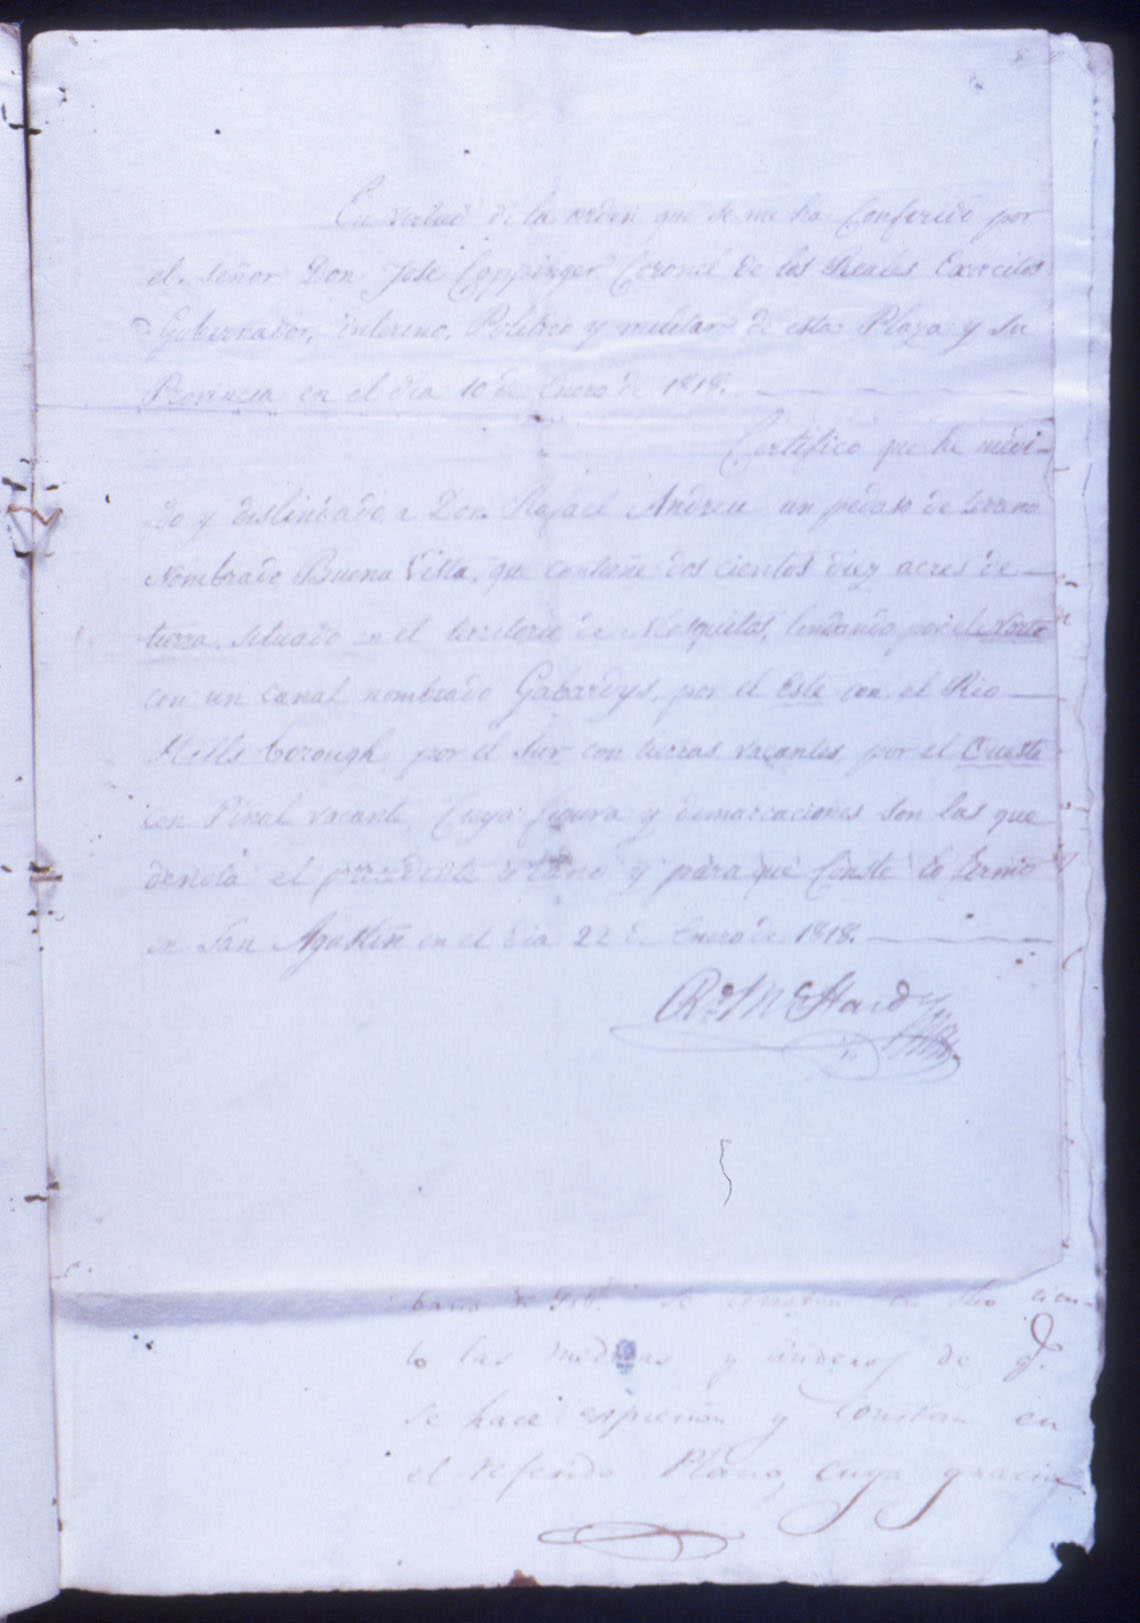 En virtud de la orden que se me ha Conferido por
el Señor Don Jose Coppinger Coronel de los Reales Exercitos
Gobernador, interino, Politico y militar de esta Plaza y su
Provincia en el dia 10 de Enero de 1818.
Certifico que he medi-
do y deslindado a Don Rafael Andreu un pedaso de terreno
Nombrado Buena Vista, que contiene dos cientos diez acres de
tierra, situado en el territorio de Mosquitos, lindando por el Norte
con un Canal nombrado Gabardys, por el Este con el Rio
Hills borough, por el Sur con tierras vacantes, por el Oueste
con Pinal vacante, Cuya figura y demarcaciones son las que
denota el precedente Plano y para que Conste lo firmo
en San Agustin en el dia 22 de Enero de 1818.
Rt. McHardy
to las medidas y linderos de q.e
se hace expresion y constan en
el referido Plano, cuya gracia